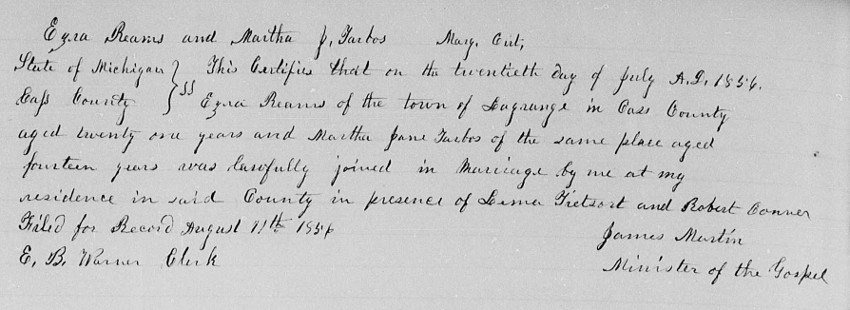 Ezra Reams and Martha J. Tarbos Marg. Cirt,
State of Michigan } ss This Certifies that on the twentieth day of July A.D. 1856.
Cass County } Ezra Reams of the town of Lagrange in Cass County
aged twenty one years and Martha Jane Tarbos of the same place aged
fourteen years was lawfully joined in Marriage by me at my
residence in said County in presence of Tietsort and Robert Conner
Filed for Record August 11th 1856
James Martin
E. B. Warner Clerk
Minister of the Gospel